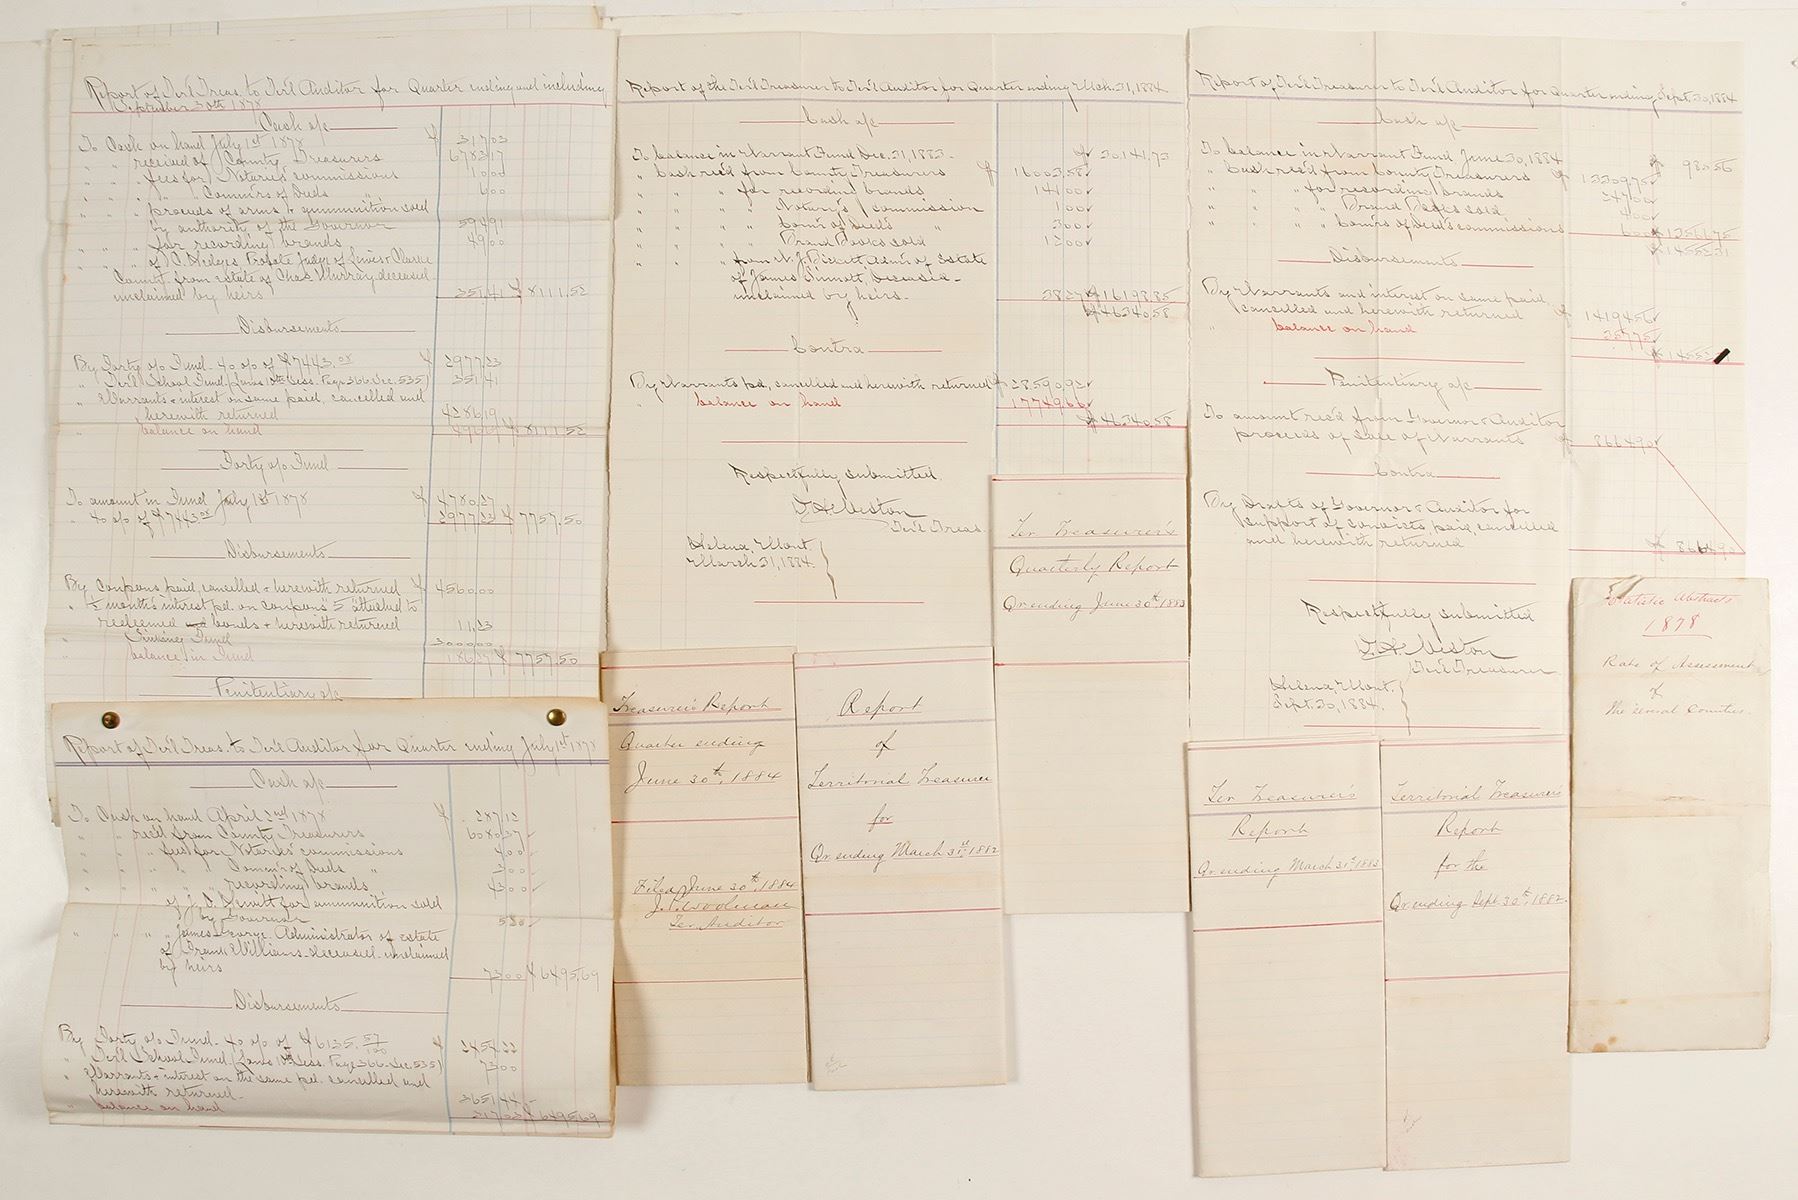 Report of Ter'l Treas. to Ter'l Auditor for Quarter ending and including
September 30th 1878
Cash a/c
To Cash on hand July 1st 1878 $ 317.03
" " received of County Treasurers 6783.17
" " " fees for Notaries commissions 10.00
" " " " Comm'rs of Deeds " 6.00
" " " proceeds of arms & ammunition sold
by authority of the Governor 594.91
" " " for recording brands 49.00
" " " of C. Hedges Probate Judge of Lewis & Clarke
County from estate of Chas. Murray deceased
unclaimed by heirs 351.41 $ 8111.52
Disbursements
By Forty o/o Fund. 40 o/o of $7443.08 $ 2977.23
" Ter'l School Fund (Laws 10th Sess. Page 366 Sec. 535) 351.41
" Warrants & interest on same paid, cancelled and
herewith returned 4286.19
" balance on hand 496.69 $ 8111.52
Forty o/o Fund
To amount in Fund July 1st 1878 $ 4780.27
" 40 o/o of $7443.08 2977.23 $ 7757.50
Disbursements
By Coupons paid, cancelled & herewith returned $ 4560.00
" ½ month's interest pd. on coupons "5" attached to
redeemed bonds & herewith returned 11.23
" Sinking Fund 3000.00
" balance in Fund 186.27 $ 7757.50
Penitentiary a/c
Report of Ter'l Treas. to Ter'l Auditor for Quarter ending July 1st 1878
Cash a/c
To Cash on hand April 2nd 1878 $ 287.12
" " rec'd from County Treasurers 6080.37
" " " fees for Notaries' commissions 4.00
" " " " Comm'rs of Deeds " 3.00
" " " " recording brands 43.00
" " " of J. D. Hewitt for ammunition sold
by Governor 5.20
" " " " James George Administrator of Estate
of Frank Williams deceased unclaimed
by heirs 73.00 $ 6495.69
Disbursements
By Forty o/o Fund. 40 o/o of $6135.57/100 $ 2454.22
" Ter'l School Fund (Laws 10th Sess. Page 366 Sec. 535) 73.00
" Warrants & interest on the same pd. cancelled and
herewith returned 3651.44
" balance on hand 317.03 $ 6495.69
Report of the Ter'l Treasurer to Ter'l Auditor for Quarter ending Mch. 31, 1884
Cash a/c
To balance in Warrant Fund Dec. 31, 1883 $ 30141.73
" Cash rec'd from County Treasurers $ 16003.58
" " " for recording brands 141.00
" " " " Notary's commission 1.00
" " " " Com'r of Deeds " 3.00
" " " " Brand Books sold 12.00
" " " from N. J. Adm'r of Estate
of James Sinnott, Deceased
unclaimed by heirs 38.27 $ 16198.85
$ 46340.58
Contra
By Warrants pd, cancelled and herewith returned $ 28590.92
" balance on hand 17749.66
$ 46340.58
Respectfully submitted
D. H. Weston
Ter'l Treas.
Helena, Mont.
March 31, 1884.
Ter Treasurer's
Quarterly Report
Qr ending June 30th, 1883
Treasurer's Report
Quarter ending
June 30th, 1884
Filed June 30th, 1884
J. P. Woolman
Ter Auditor
Report
of
Territorial Treasurer
for
Qr ending March 31st, 1882
Report of Ter'l Treasurer to Ter'l Auditor for Quarter ending Sept. 30, 1884
Cash a/c
To balance in Warrant Fund June 30, 1884 $ 980.56
" Cash rec'd from County Treasurers $ 13309.75
" " " for recording brands
" " " " Brand Books sold 4.00
" " " " Com'rs of Deeds commissions 6.00 $ 13571.75
$ 14552.31
Disbursements
By Warrants and interest on same paid,
cancelled and herewith returned $ 14194.56
" balance on hand 357.75
Penitentiary a/c
To amount rec'd from Governor & Auditor
proceeds of sale of Warrants $ 8664.90
Contra
By Drafts of Governor & Auditor for
support of convicts paid, cancelled
and herewith returned $ 8664.90
Respectfully submitted
D. H. Weston
Ter'l Treasurer
Helena, Mont.
Sept. 30, 1884.
Ter Treasurer's
Report
Qr ending March 31st, 1883
Territorial Treasurer's
Report
for the
Qr ending Sept 30th, 1882.
Abstracts
1878
Rate of Assessment
of
the several Counties.